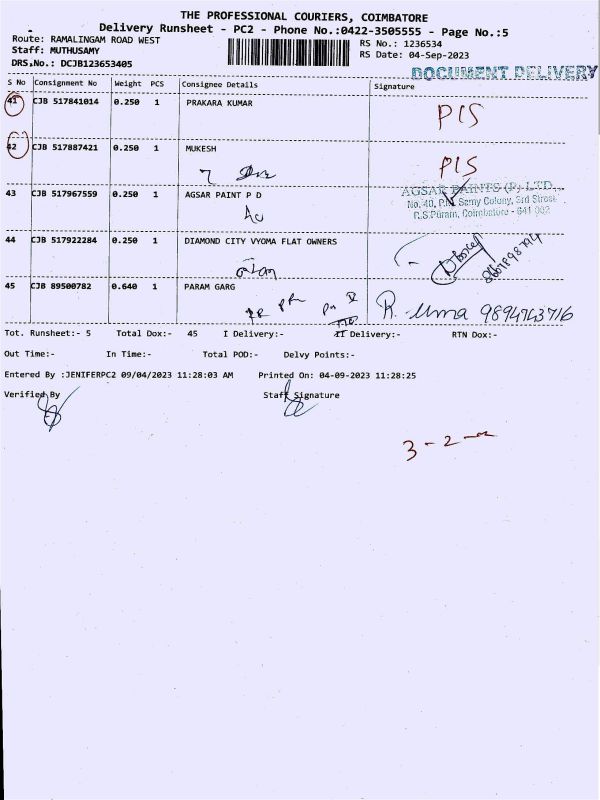 THE PROFESSIONAL COURIERS, COIMBATORE
Delivery Runsheet - PC2 - Phone No.:0422-3505555 - Page No.:5
Route: RAMALINGAM ROAD WEST
Staff: MUTHUSAMY
DRS,No.: DCJB123653405
RS No.: 1236534
RS Date: 04-Sep-2023
DOCUMENT DELIVERY
S No Consignment No Weight PCS Consignee Details Signature
41 CJB 517841014 0.250 1 PRAKARA KUMAR PIS
42 CJB 517887421 0.250 1 MUKESH PIS
43 CJB 517967559 0.250 1 AGSAR PAINT P D
AGSAR PAINTS (P) LTD.,
No. 40, P.M. Samy Colony, 3rd Street
R.S.Puram, Coimbatore - 641 002
44 CJB 517922284 0.250 1 DIAMOND CITY VYOMA FLAT OWNERS
45 CJB 89500782 0.640 1 PARAM GARG
R. Uma 9894743716
Tot. Runsheet:- 5 Total Dox:- 45 I Delivery:- II Delivery:- RTN Dox:-
Out Time:- In Time:- Total POD:- Delvy Points:-
Entered By :JENIFERPC2 09/04/2023 11:28:03 AM Printed On: 04-09-2023 11:28:25
Verified By Staff Signature
3 - 2 -